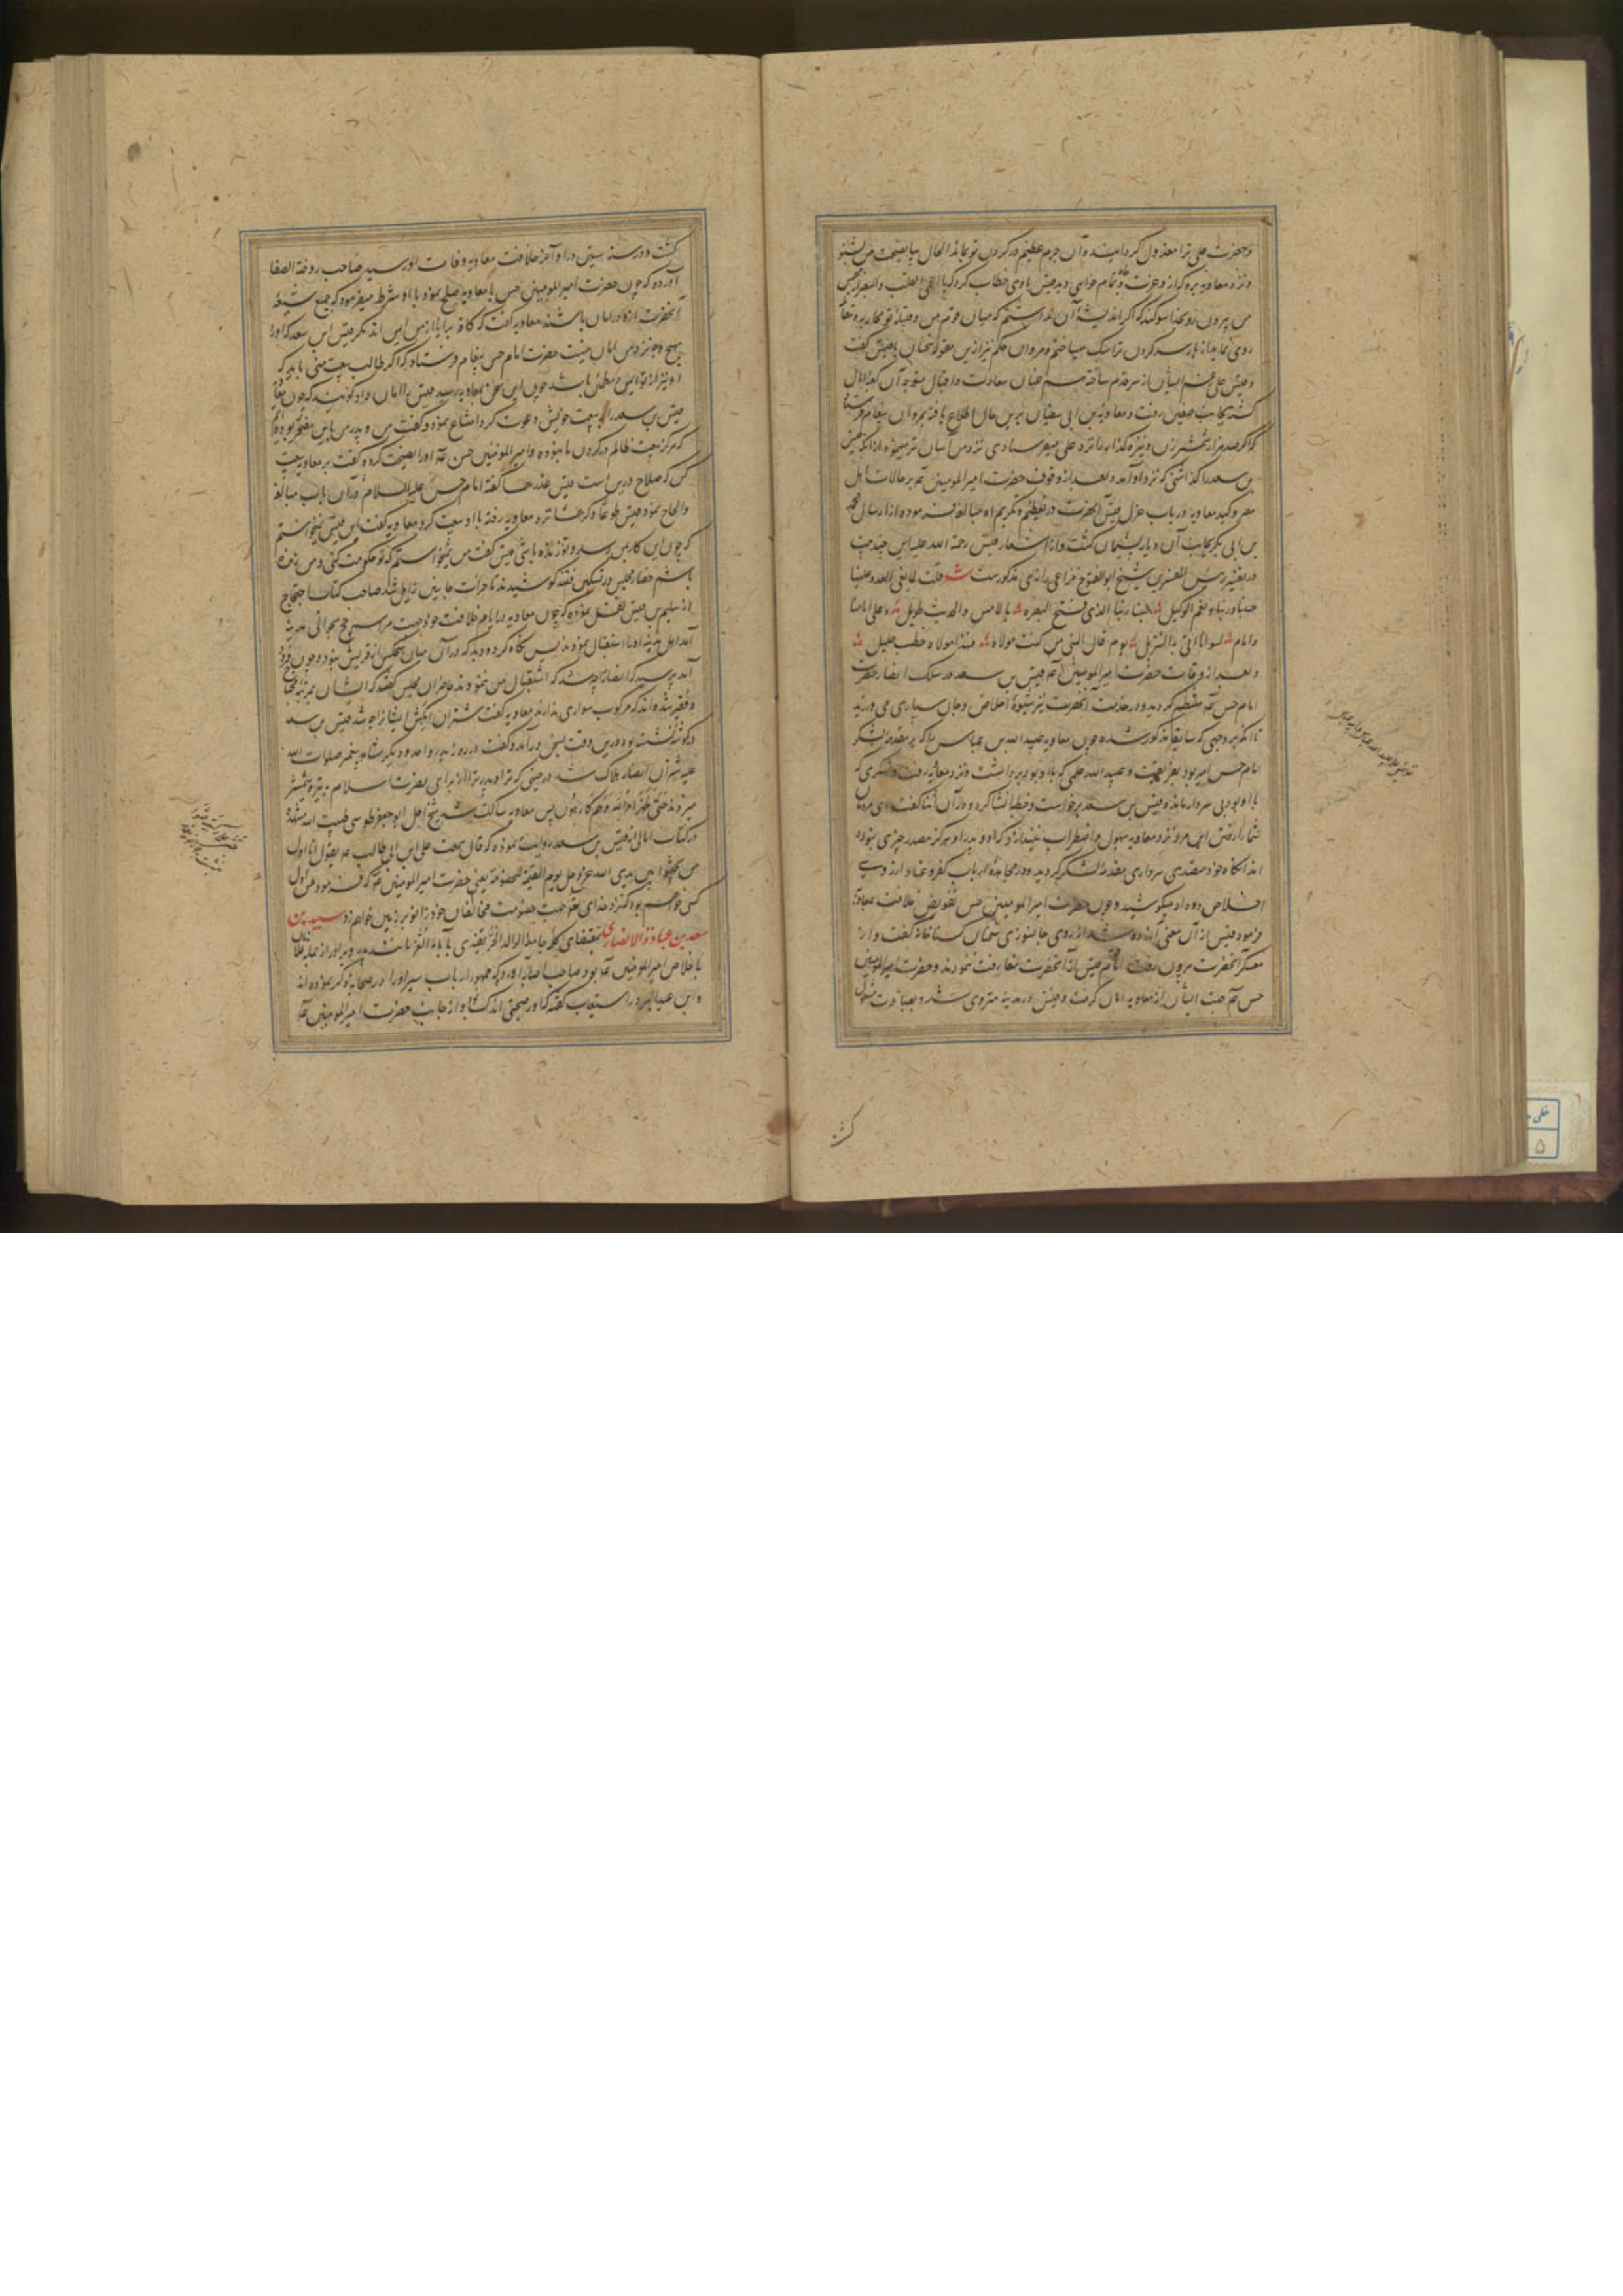 وحضرت علی ترا معزول کردانیده وآن جرم عظیم در کردن تو بماند الحال بیا نصیحت من بشنو
ونزد معاویه برو که از وعزت وجاه تمام خواهی دید قیس باوی خطاب کرد که یا اعمی القلب والبصر از مجلس
من بیرون رو بخدا سوکند که اگر اندیشهٔ آن نداشتم که میان قوم من وقبیلهٔ تو محاربه وتعا
روی نماید از بار سر کردن ترا سبک میساختم ومروان حکم نیز ازین مقوله سخنان با قیس گفت
وقیس علی رغم ایشان از سر قدم ساخته همعنان سعادت واقبال متوجه آن کعبه آمال
گشته بجانب صفین رفت ومعاویه بن ابی سفیان برین حال اطلاع یافته بمروان پیغام فرستاد
که اگر صد هزار شمشیر زن ونیزه گذار بلشکر علی میفرستادی نزد من آسان تر مینمود از آنکه قیس
بن سعد را گذاشتی که نزد او آید وبعد از وقوف حضرت امیرالمومنین ع بر حالات اهل
مصر وکید معاویه در باب عزل قیس آنحضرت در تعظیم وتکریم او مبالغه فرموده از ارسال محمد
بن ابی بکر بجانب آن دیار پشیمان گشت واز اشعار قیس رحمة الله علیه این چند بیت
در تفسیر رئیس المفسرین شیخ ابوالفتوح خزاعی رازی مذکورست شعر قلت لما بغی العدو علینا
حسبنا ربنا ونعم الوکیل حسبنا ربنا الذی فتح البصره بالامس والحدیث طویل وعلی امامنا
وامام لسوانا اتی به التنزیل یوم قال النبی من کنت مولاه فهذا مولاه خطب جلیل
وبعد از وفات حضرت امیرالمومنین ع قیس بن سعد در سلک انصار حضرت
امام حسن ع منتظم گردید ودر خدمت آنحضرت نیز شیوهٔ اخلاص وجان سپاری می ورزید
تا آنکه بر وجهی که سابقا مذکور شده چون معاویه عبیدالله بن عباس را که بر مقدمه لشکر
امام حسن امیر بود بفریفت وعبیدالله علمی که با او بود برداشت ونزد معاویه رفت ولشکری که
با او بود بی سردار ماند وقیس بن سعد برخواست وخطبه انشا کرد ودر آن اثنا گفت ای مردمان
شما را رفتن این مرد نزد معاویه بهول واضطراب نیندازد که او وپدر او هرگز مصدر چیزی نبوده
اند آنگاه خود متصدی سرداری مقدمه لشکر گردید ودر مجاهدهٔ ارباب کفر وعناد از روی
اخلاص داد میکوشید وچون حضرت امیرالمومنین حسن تفویض خلافت بمعاویه
فرمود قیس از آن معنی آزرده شد از روی جانسوزی سخنان گستاخانه گفت واز
معسکر آنحضرت بیرون رفت اما قیس از آنحضرت مفارقت ننمودند وحضرت امیرالمومنین
حسن ع جهت ایشان از معاویه امان گرفت وقیس در مدینه منزوی شد وبعبادت مشغول
گشت
گشت ودر سنه ستین در اواخر خلافت معاویه وفات او رسید صاحب روضة الصفا
آورده که چون حضرت امیرالمومنین حسن با معاویه صلح نمود با او شرط میفرمود که جمیع شیعهٔ
آنحضرت ازو در امان باشند معاویه گفت که کافه برایا از من ایمن اند مگر قیس ابن سعد که او را
بهیچ وجه نزد من امان نیست حضرت امام حسن پیغام فرستاد که اگر طالب بیعت منی باید که
او نیز از تو ایمن ومطمئن باشد چون این سخن بمعاویه رسید قیس را امان داد گویند که چون معاویه
قیس بن سعد را به بیعت خویش دعوت کرد امتناع نموده گفت من وپدر من باین مفتخر بودیم
که هرگز بیعت ظالم در گردن ما نبوده وامیرالمومنین حسن ع او را نصیحت کرده گفت برو بمعاویه بیعت
کن که صلاح درین است قیس عذرها گفته امام حسن علیه السلام در آن باب مبالغه
والحاح نموده قیس طوعا وکرها نزد معاویه رفته با او بیعت کرد معاویه گفت ای قیس نمیخواستم
که چون این کار بمن رسد وتو زنده باشی قیس گفت من نمیخواستم که تو حکومت کنی ومن زنده
باشم حضار مجلس در تسکین فتنه کوشیدند تا حرارت جانبین زایل شد صاحب کتاب احتجاج
از سلیم بن قیس نقل نموده که چون معاویه در ایام خلافت خود جهت مراسم حج بحوالی مدینه
آمد اهل مدینه او را استقبال نمودند پس نگاه کرد ودید که در آن میان هیچکس از قریش نبود وچون فرود
آمد پرسید که انصار را چه شد که استقبال من ننمودند حاضران مجلس گفتند که ایشان بمرتبه محتاج
وفقیر شده اند که مرکوب سواری ندارند معاویه گفت شتران آبکش ایشانرا چه شد قیس بن سعد
در گوشه نشسته بود درین وقت بسخن درآمد وگفت در روز بدر واحد ودیگر مشاهد پیغمبر صلوات الله
علیه شتران انصار هلاک شد در حینی که ترا وپدر ترا از برای نصرت اسلام به نیزه وشمشیر
میزدند حتی ظهر امر الله وهم کارهون پس معاویه ساکت شد شیخ اجل ابوجعفر طوسی طیب الله مشهده
در کتاب امالی از قیس بن سعد روایت نموده که قال سمعت علی ابن ابی طالب ع یقول انا اول
من یجثوا بین یدی الله عز وجل یوم القیمه للخصومه یعنی حضرت امیرالمومنین ع که فرمود من اول
کسی خواهم بود که نزد خدای تعالی جهت خصومت مخالفان خود زانو بر زمین خواهم زد سعید بن
سعد بن عبادة الانصاری بمقتضای کلمه جامعه الولد الحر یقتدی بآبائه الغر مانند پدر وبرادر از جمله غلامان
با خلاص امیرالمومنین ع بود صاحب اصابه آورده که جمهور ارباب سیر او را در صحابه ذکر نموده اند
وابن عبدالبر در استیعاب گفته که او را صحبتی اندک است واز جانب حضرت امیرالمومنین ع